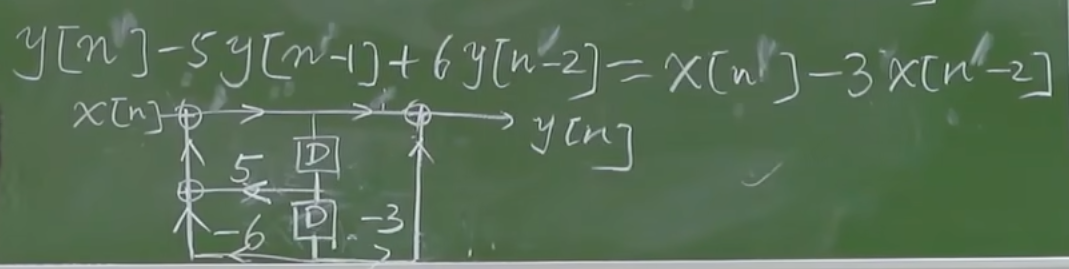 y[n]-5y[n-1]+6y[n-2]=x[n]-3x[n-2]
x[n]
y[n]
D
5
D
-3
-6